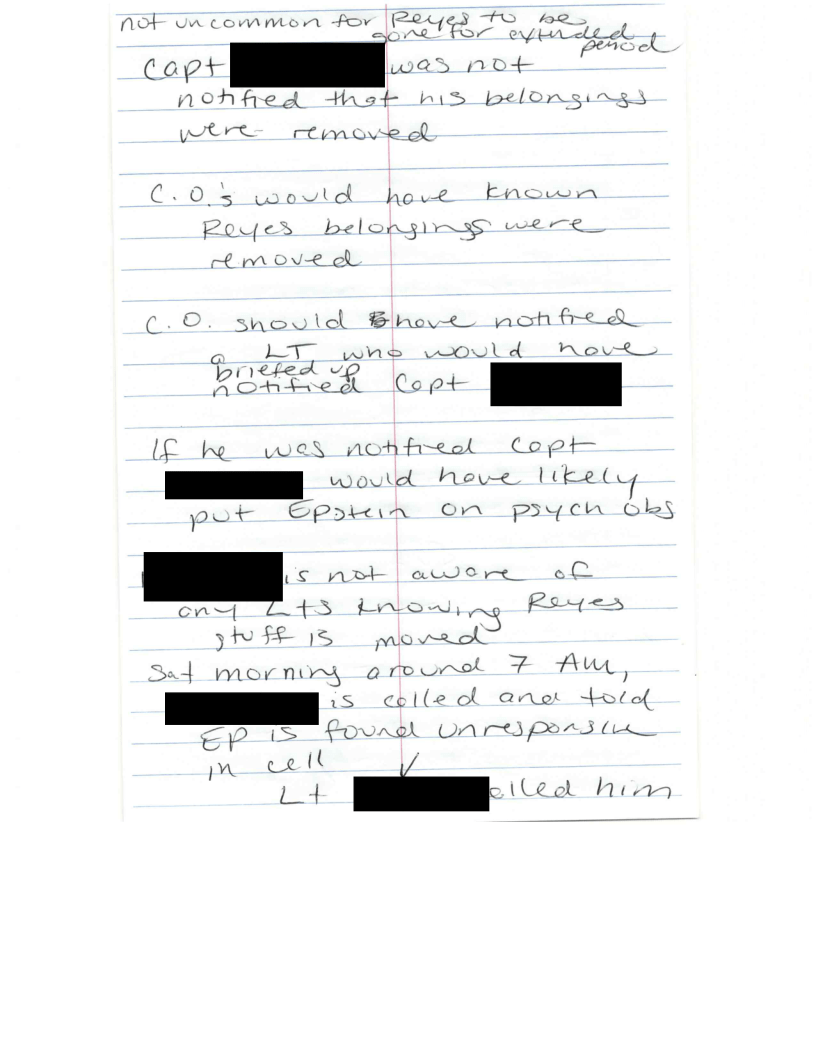 not uncommon for Reyes to be
gone for extended
period
Capt was not
notified that his belongings
were removed
C.O.'s would have known
Reyes belongings were
removed
C.O. should have notified
a LT who would have
briefed up
notified Capt
If he was notified Capt
would have likely
put Epstein on psych obs
is not aware of
any Lts knowing Reyes
stuff is moved
Sat morning around 7 AM,
is called and told
EP is found unresponsive
in cell
Lt called him